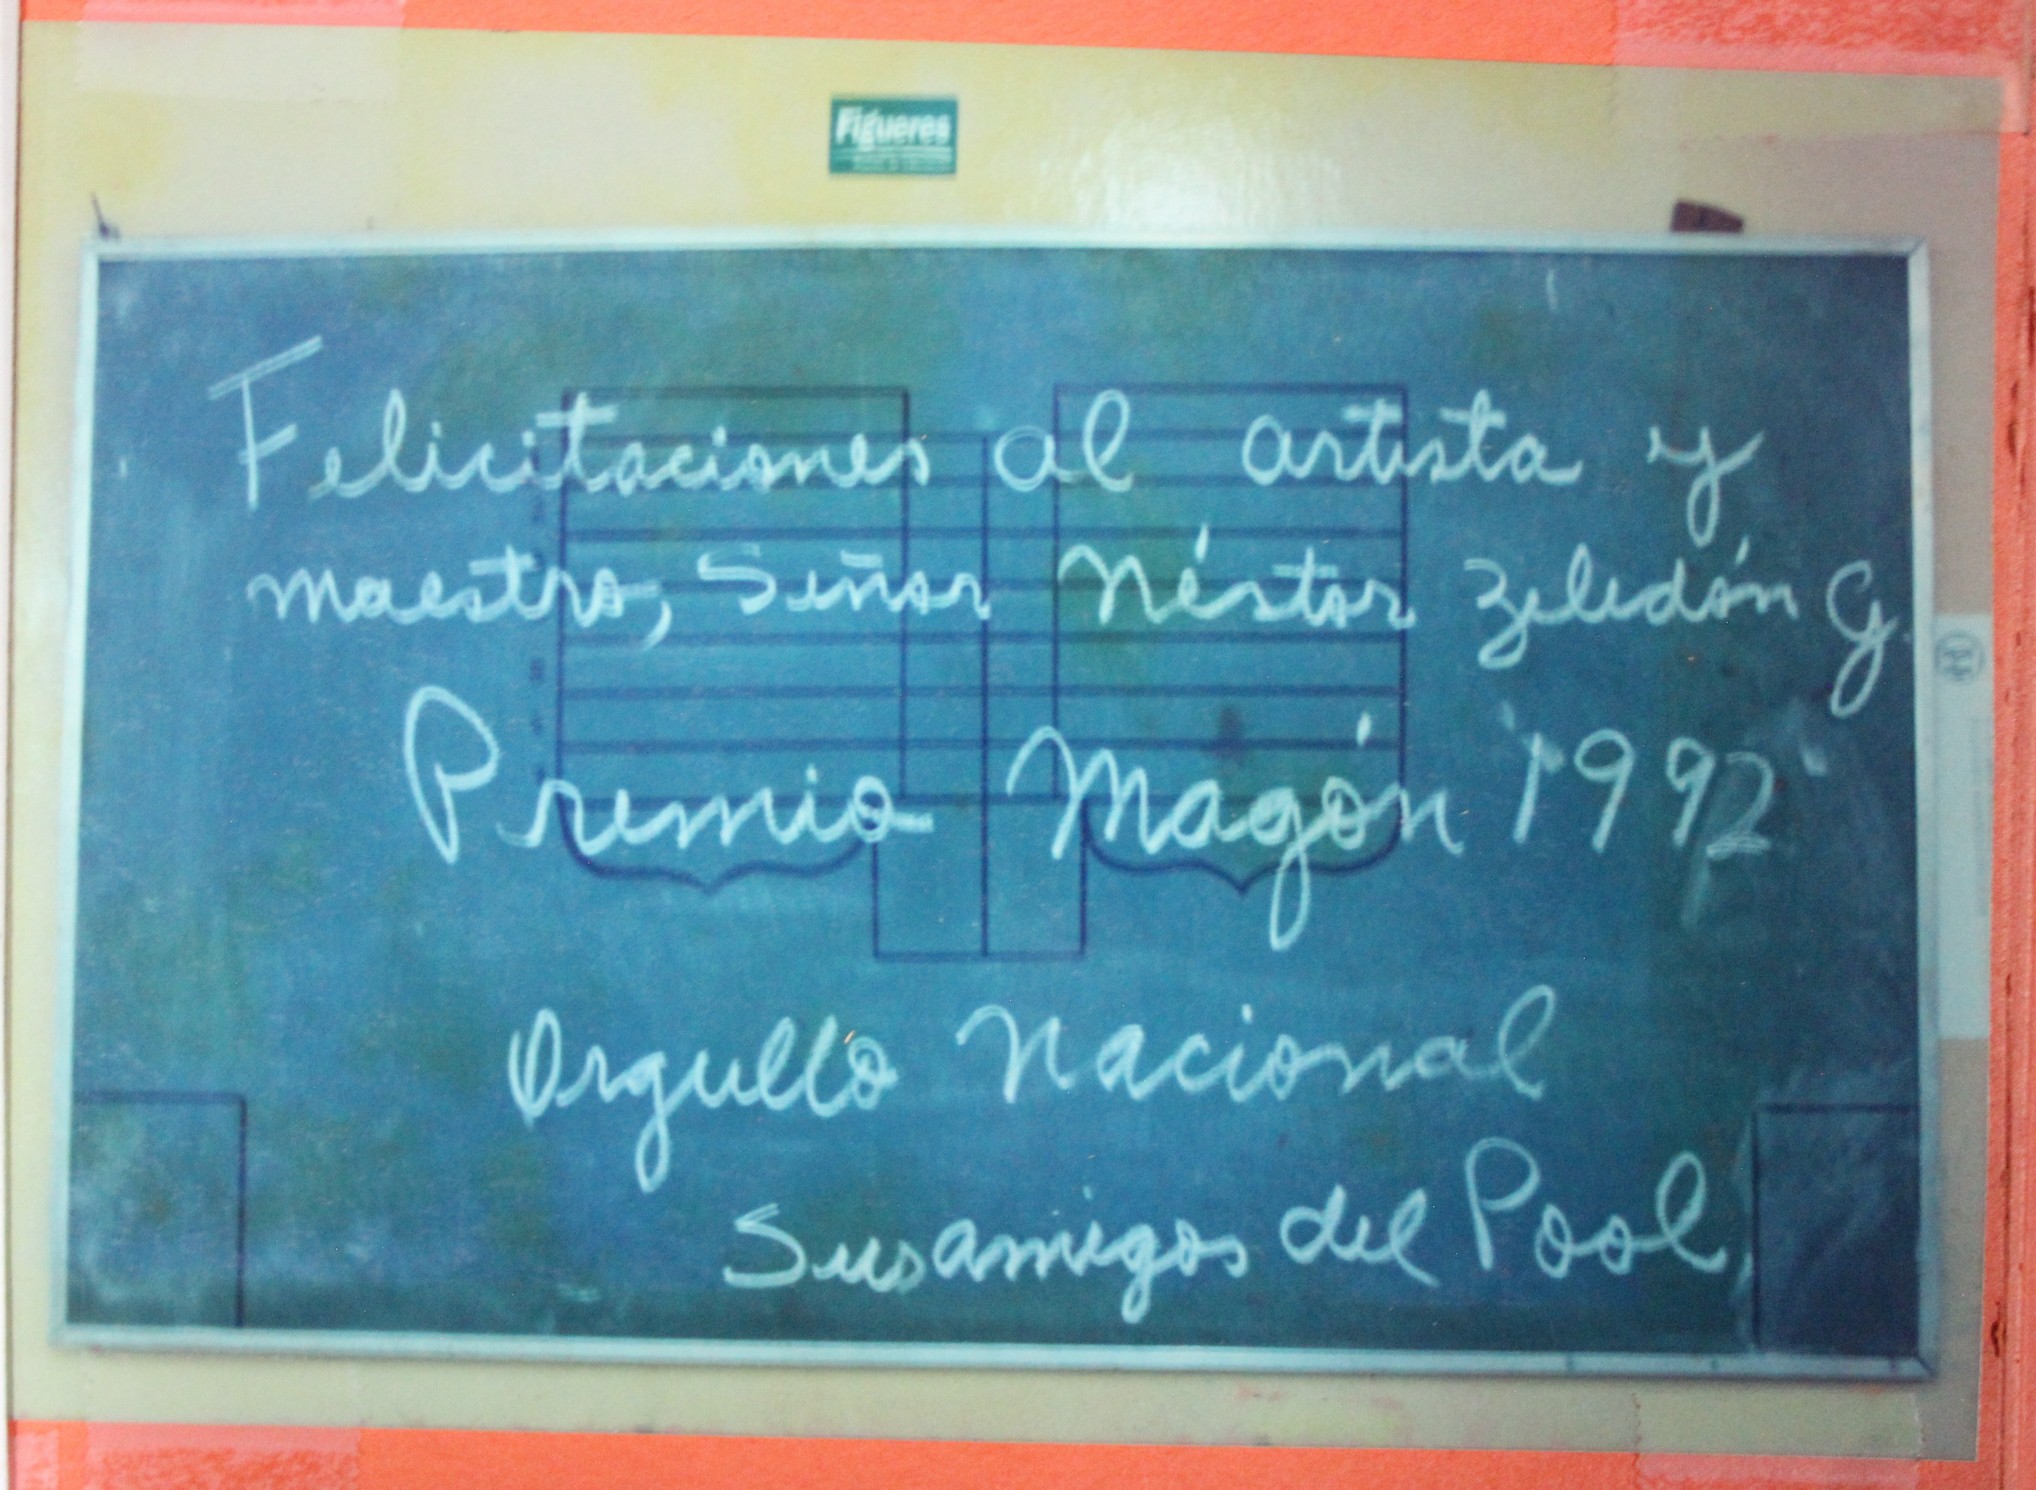 Figueres
Felicitaciones al artista y
maestro, Señor Néstor Zeledón G.
Premio Magón '1992'
Orgullo Nacional
Sus amigos del Pool